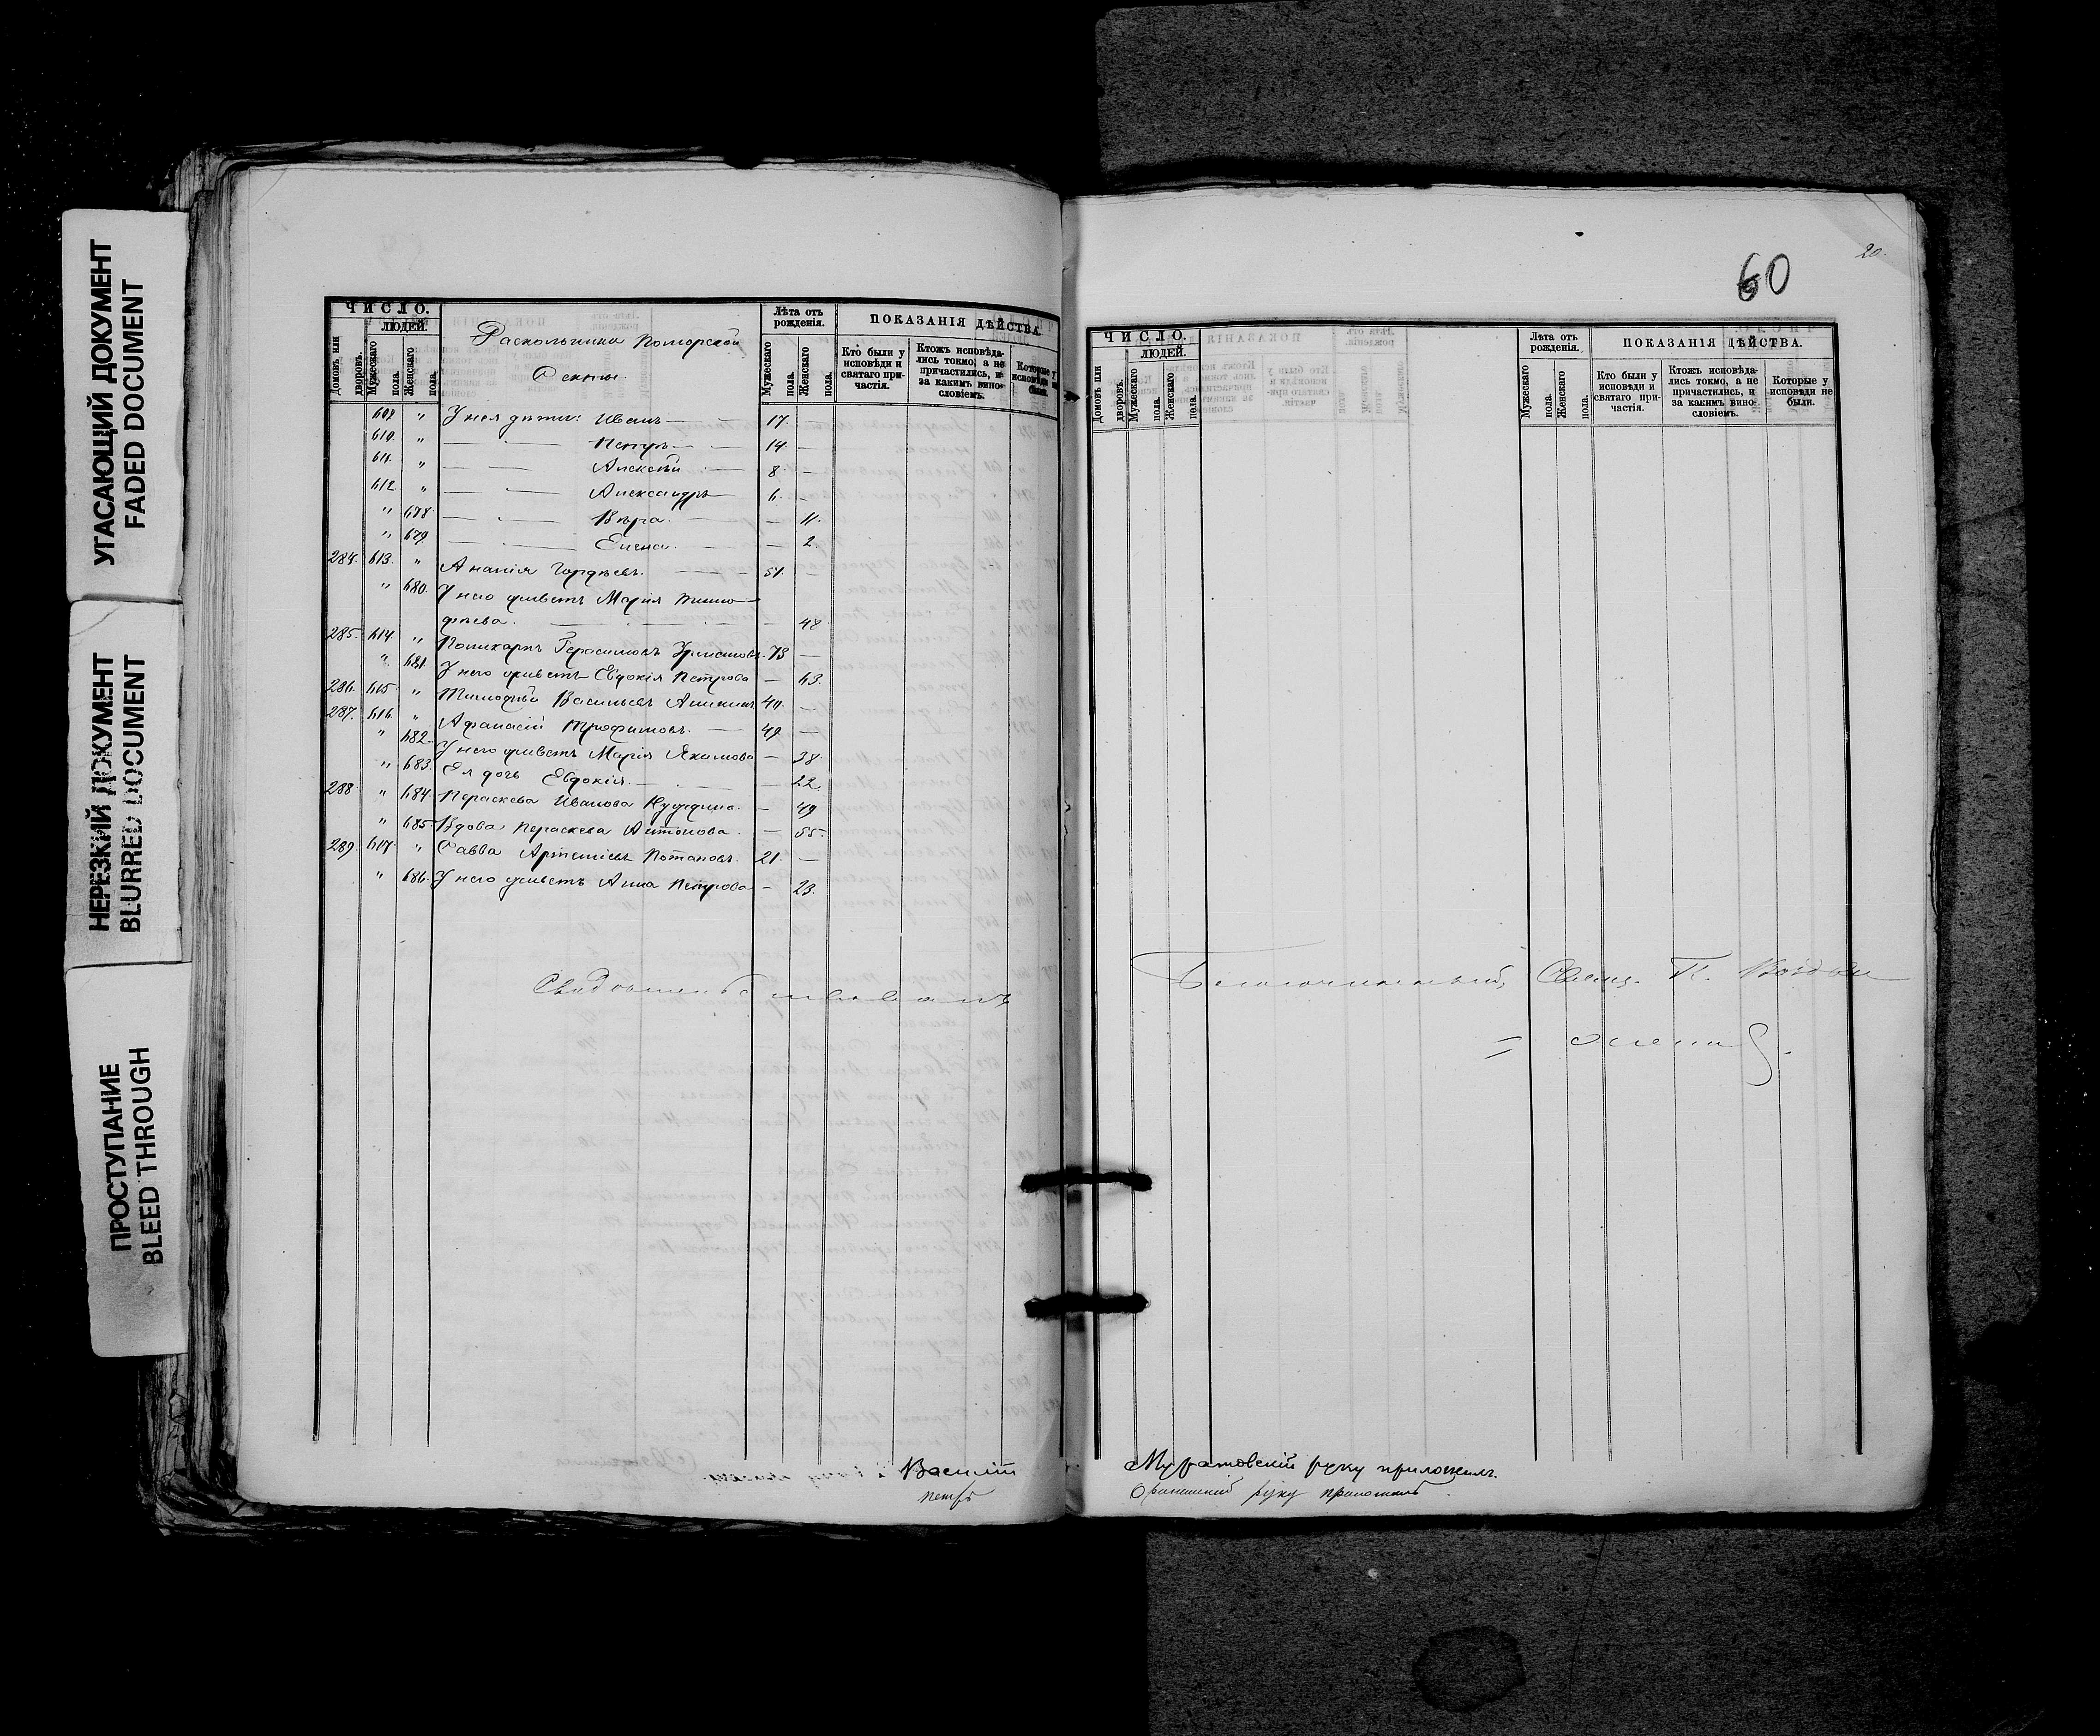 УГАСАЮЩИЙ ДОКУМЕНТ
FADED DOCUMENT
НЕРЕЗКИЙ ДОКУМЕНТ
BLURRED DOCUMENT
ПРОСТУПАНИЕ
BLEED THROUGH
ЧИСЛО.
ЛЮДЕЙ.
Домовъ или дворовъ.
Мужескаго пола.
Женскаго пола.
Раскольники Поморской
Секты.
Лѣта отъ рожденія.
Мужескаго пола.
Женскаго пола.
ПОКАЗАНІЯ ДѢЙСТВА.
Кто были у исповѣди и святаго причастія.
Ктожъ исповѣдались токмо, а не причастились, и за какимъ винословіемъ.
Которые у исповѣди не были.
609 " У нея дѣти: Иванъ 17. —
610. " — Петръ 14. —
611. " — Алексѣй 8. —
612. " — Александръ 6. —
" 678. — Вѣра. — 11.
" 679. — Елена. — 2.
284. 613. " Ананія Гордѣевъ. 51. —
" 680. У него живетъ Марія Тимо-
фѣева. — 48
285. 614. " Поликарпъ Герасимовъ 73 —
" 681. У него живетъ Евдокія Петрова — 63.
286. 615. " Тимофей Васильевъ 40. —
287. 616. " Афанасій Трофимовъ. 49 —
" 682. У него живетъ Марія Якимова — 38.
" 683. Ея дочь Евдокія. — 22.
288 " 684. Параскева Иванова — 49
" 685. Вдова Параскева Антонова. — 55.
289. 617. " Савва Артеміевъ Потаповъ. 21. —
" 686. У него живетъ Анна Петрова — 23.
Свидѣтельствовалъ
Василій
Петръ
60
20.
ЧИСЛО.
ЛЮДЕЙ.
Домовъ или дворовъ.
Мужескаго пола.
Женскаго пола.
Лѣта отъ рожденія.
Мужескаго пола.
Женскаго пола.
ПОКАЗАНІЯ ДѢЙСТВА.
Кто были у исповѣди и святаго причастія.
Ктожъ исповѣдались токмо, а не причастились, и за какимъ винословіемъ.
Которые у исповѣди не были.
Благочинный, Свящ. П.
Муратовскій руку приложилъ.
руку приложилъ.